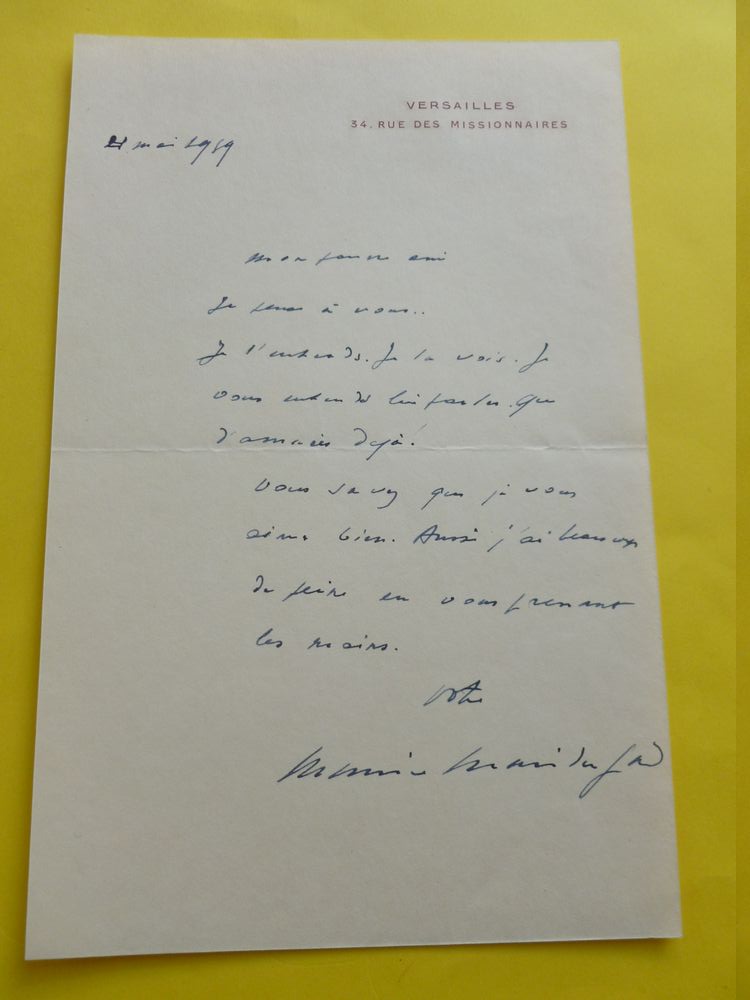 VERSAILLES
34. RUE DES MISSIONNAIRES
mai 1959
mon pauvre ami
Je pense à vous..
Je l'entends. Je la vois. Je
vous entends lui parler. Que
d'années déjà!
Vous savez que je vous
aime bien. Aussi j'ai beaucoup
de peine en vous prenant
les mains.
Votre
Maurice Martin du Gard